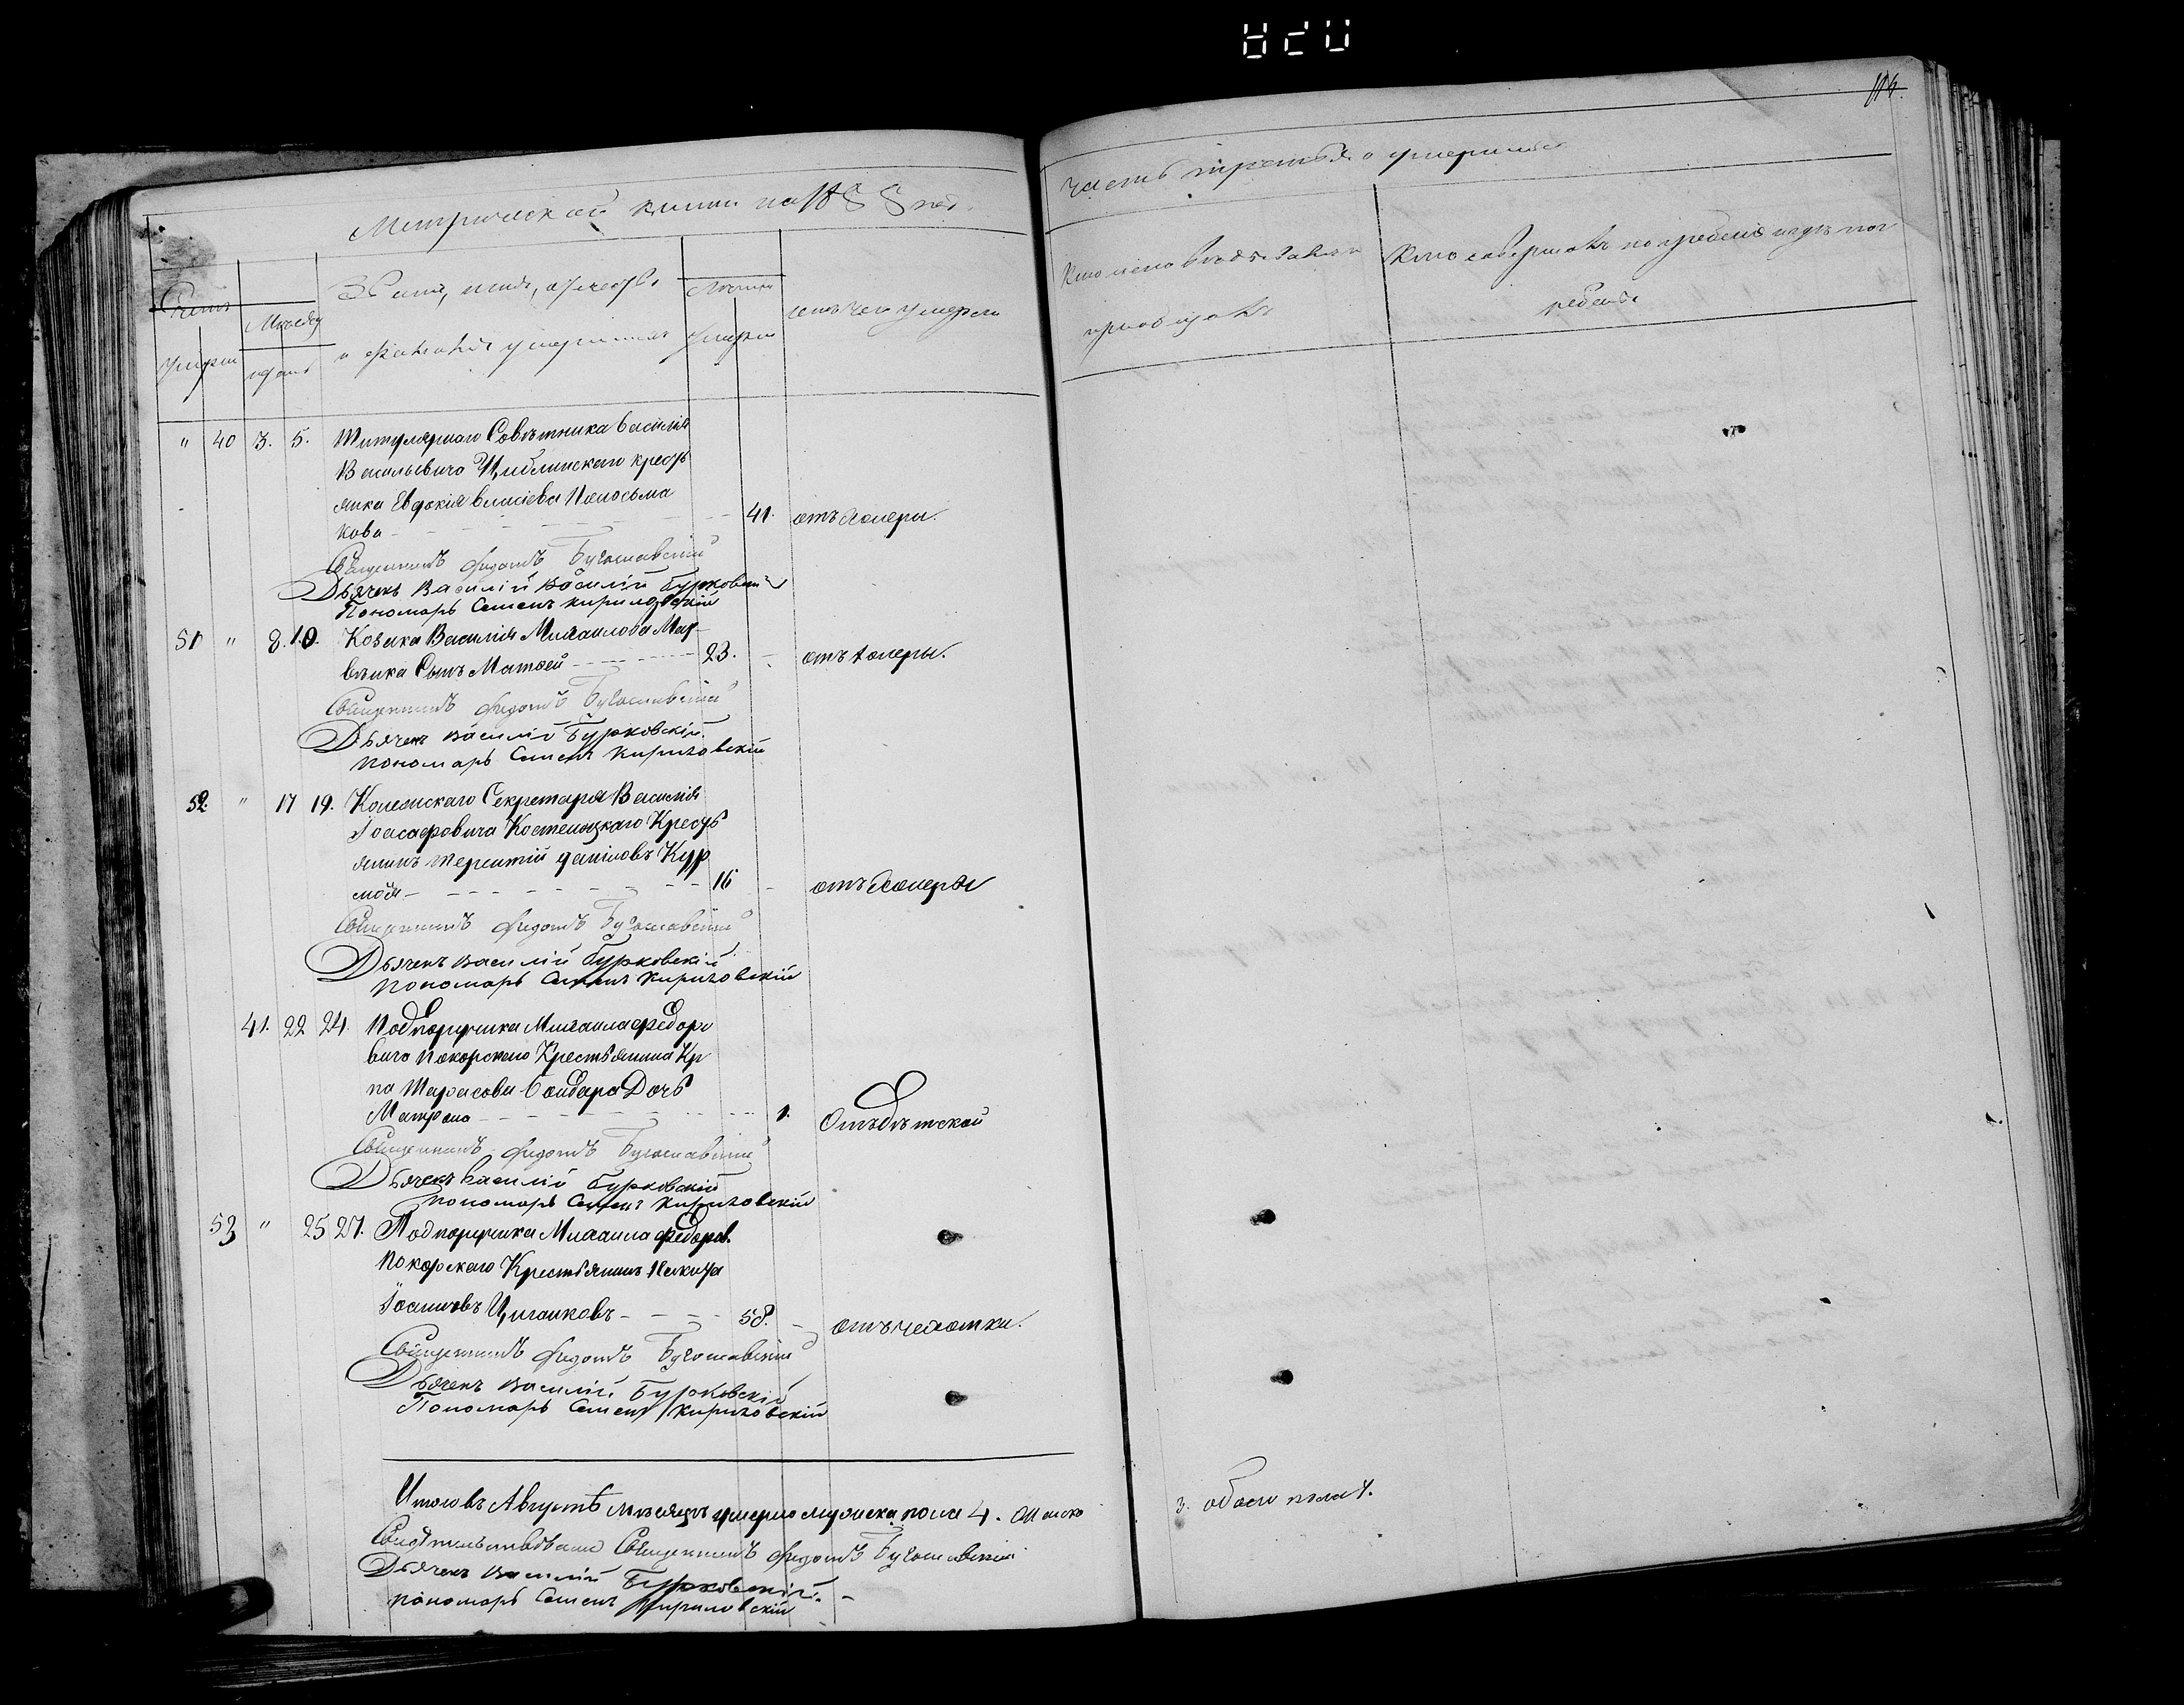 114.
Метрической книги на 1855 год.
Часть третья о умершихъ
Счетъ
умерш
Мѣсяцъ
и день
Званіе, имя, отчество
и фамилія умершихъ
Лѣта
умерш
отъ чего умерли
Кто исповѣдывалъ и
пріобщалъ
Кто совершалъ погребеніе и гдѣ пог
ребены
" 40 3. 5. Титулярнаго Совѣтника Василія
Васильевича Цыблинскаго кресть
янка Евдокія Власіева
кова 41. отъ Холеры.
Священникъ Федотъ Бугославскій
Дьячекъ Василій Василій Бурковскій
Пономарь Семенъ Кириловскій
51 " 8. 10. Козака Василія Михаилова Мат
вѣика Сынъ Матѳей 23. отъ Холеры.
Священникъ Федотъ Бугославскій
Дьячекъ Василій Бурковскій.
Пономарь Семенъ Кириловскій
52 " 17 19. Колежскаго Секретаря Василія
Іоасафовича Костенецкаго Кресть
янинъ Терентій Даніловъ Кур
мойя 16 отъ Холеры
Священникъ Федотъ Бугославскій
Дьячекъ Василій Бурковскій.
Пономарь Семенъ Кириловскій
41. 22 24. Подпоручика Михаила Федоро
вича Покорскаго Крестьянина Кр
па Тарасова Бондара Дочь
Матрона 1. Отъ дѣтской
Священникъ Федотъ Бугославскій
Дьячекъ Василій Бурковскій
Пономарь Семенъ Кириловскій
53 " 25 27. Подпоручика Михаила Федоров.
Покорскаго Крестьянинъ Никита
Іоанновъ Циганковъ 58. отъ чехотки.
Священникъ Федотъ Бугославскій
Дьячекъ Василій Бурковскій
Пономарь Семенъ Кириловскій
Итого въ Августѣ мѣсяцѣ умерло мужеска пола 4. Женско
3. обоего пола 7.
Свидѣтельствовали Священникъ Федотъ Бугославскій
Дьячекъ Василій Бурковскій.
Пономарь Семенъ Кириловскій